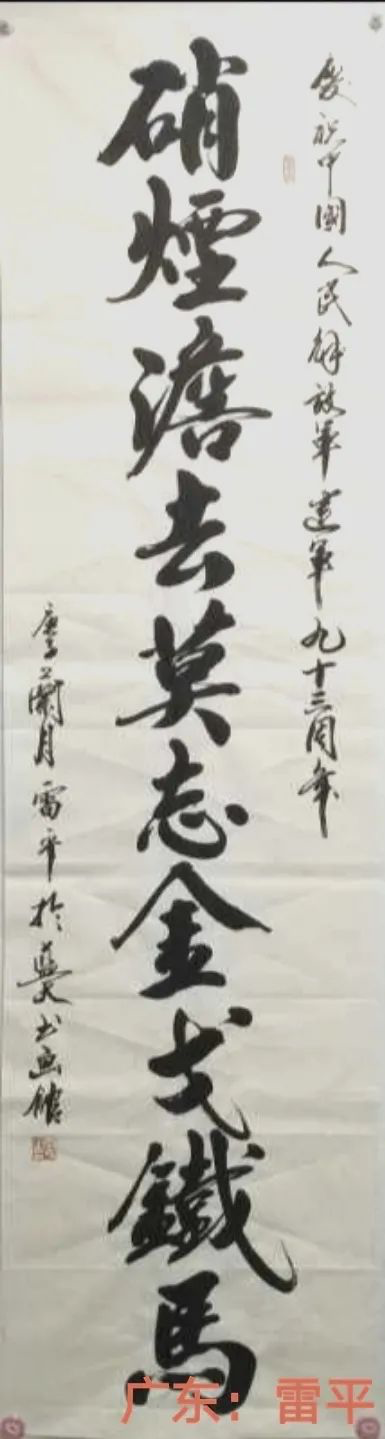 慶祝中國人民解放軍建軍九十三周年
硝煙澹去莫志金戈鐵馬
庚子蘭月雷平於藍天书画館
广东：雷平